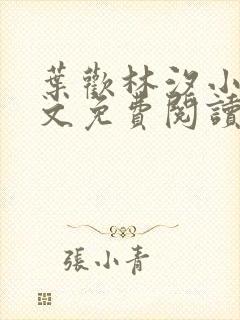 葉歡林汐小
文免費閱讀
張小青